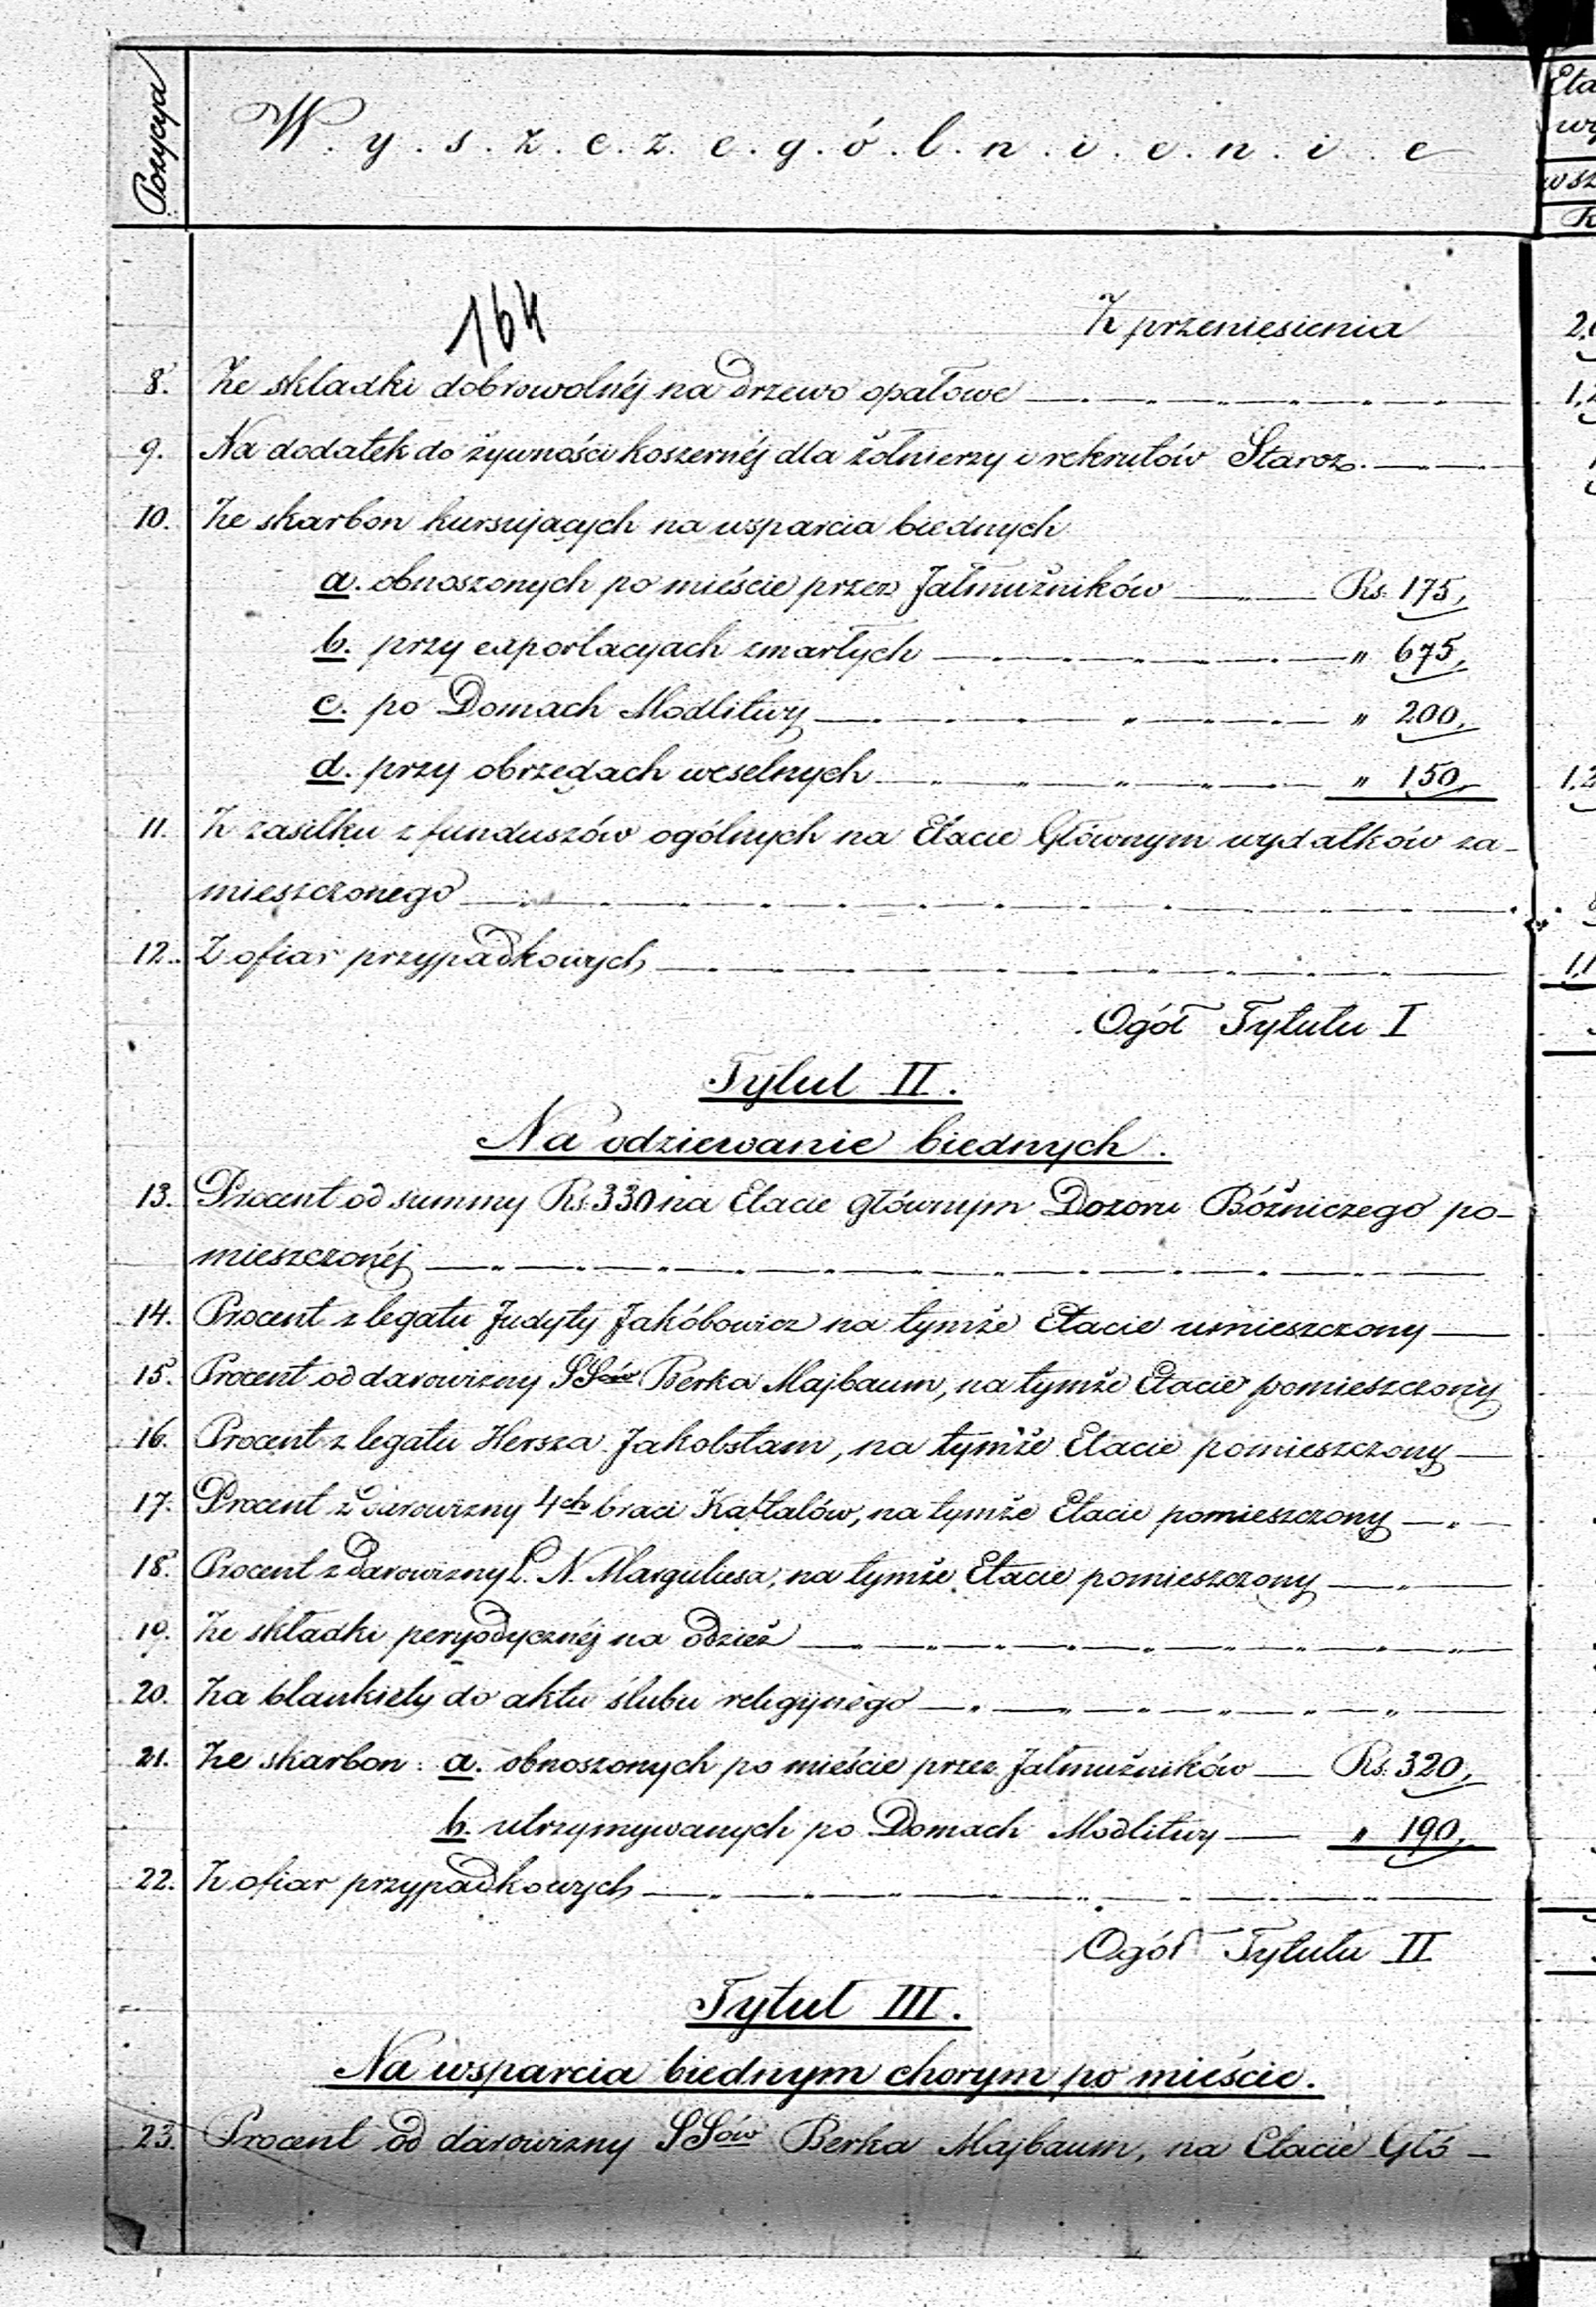 Pozycya
W.y.s.z.c.z.e.g.ó.l.n.i.e.n.i.e
164
Z przeniesienia
8. Ze składki dobrowolnéj na drzewo opałowe
9. Na dodatek do żywności koszernéj dla żołnierzy i rekrutów Staroz.
10. Ze skarbon kursujących na wsparcia biednych
a. obnoszonych po mieście przez Jałmużników Rs. 175,
b. przy exportacyjach zmarłych " 675,
c. po Domach Modlitwy " 200,
d. przy obrzędach weselnych " 150,
11. Z zasiłku z funduszów ogólnych na Etacie Głównym wydatków za-
mieszczonego
12. Z ofiar przypadkowych
Ogół Tytułu I
Tytuł II.
Na odziewanie biednych.
13. Procent od summy Rs. 330 na Etacie głównym Dozoru Bóżniczego po-
mieszczonéj
14. Procent z legatu Judyty Jakóbowicz na tymże Etacie umieszczony
15. Procent od darowizny SSów Berka Majbaum, na tymże Etacie pomieszczony
16. Procent z legatu Hersza Jakobstam, na tymże Etacie pomieszczony
17. Procent z darowizny 4ch braci Kattalów, na tymże Etacie pomieszczony
18. Procent z darowizny L. N. Marguliesa, na tymże Etacie pomieszczony
19. Ze składki peryodycznéj na odzież
20. Za blankiety do aktu ślubu religijnégo
21. Ze skarbon: a. obnoszonych po mieście przez Jałmużników Rs. 320,
b. utrzymywanych po Domach Modlitwy " 190,
22. Z ofiar przypadkowych
Ogół Tytułu II
Tytuł III.
Na wsparcia biednym chorym po mieście.
23. Procent od darowizny SSów Berka Majbaum, na Etacie Głó-